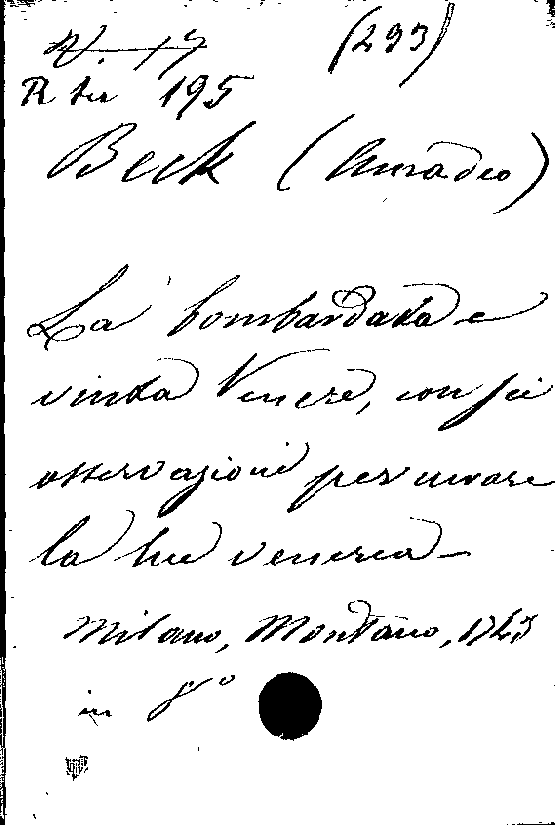 V. 17 (293)
R ter 195
Beck (Amadeo)
La bombardata e
vinta Venere, con più
osservazioni per curare
la lue venerea -
Milano, Montano, 1723
in 8°